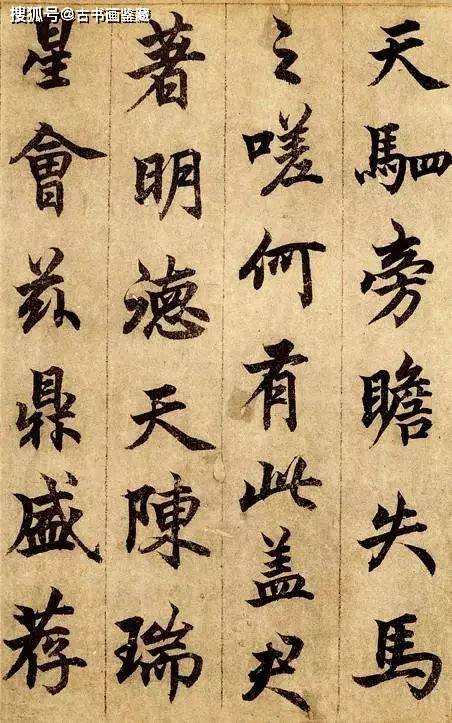 搜狐号@古书画鉴藏
天駟旁瞻失馬
之嗟何有此盖君
著明德天陳瑞
星會兹鼎盛荐